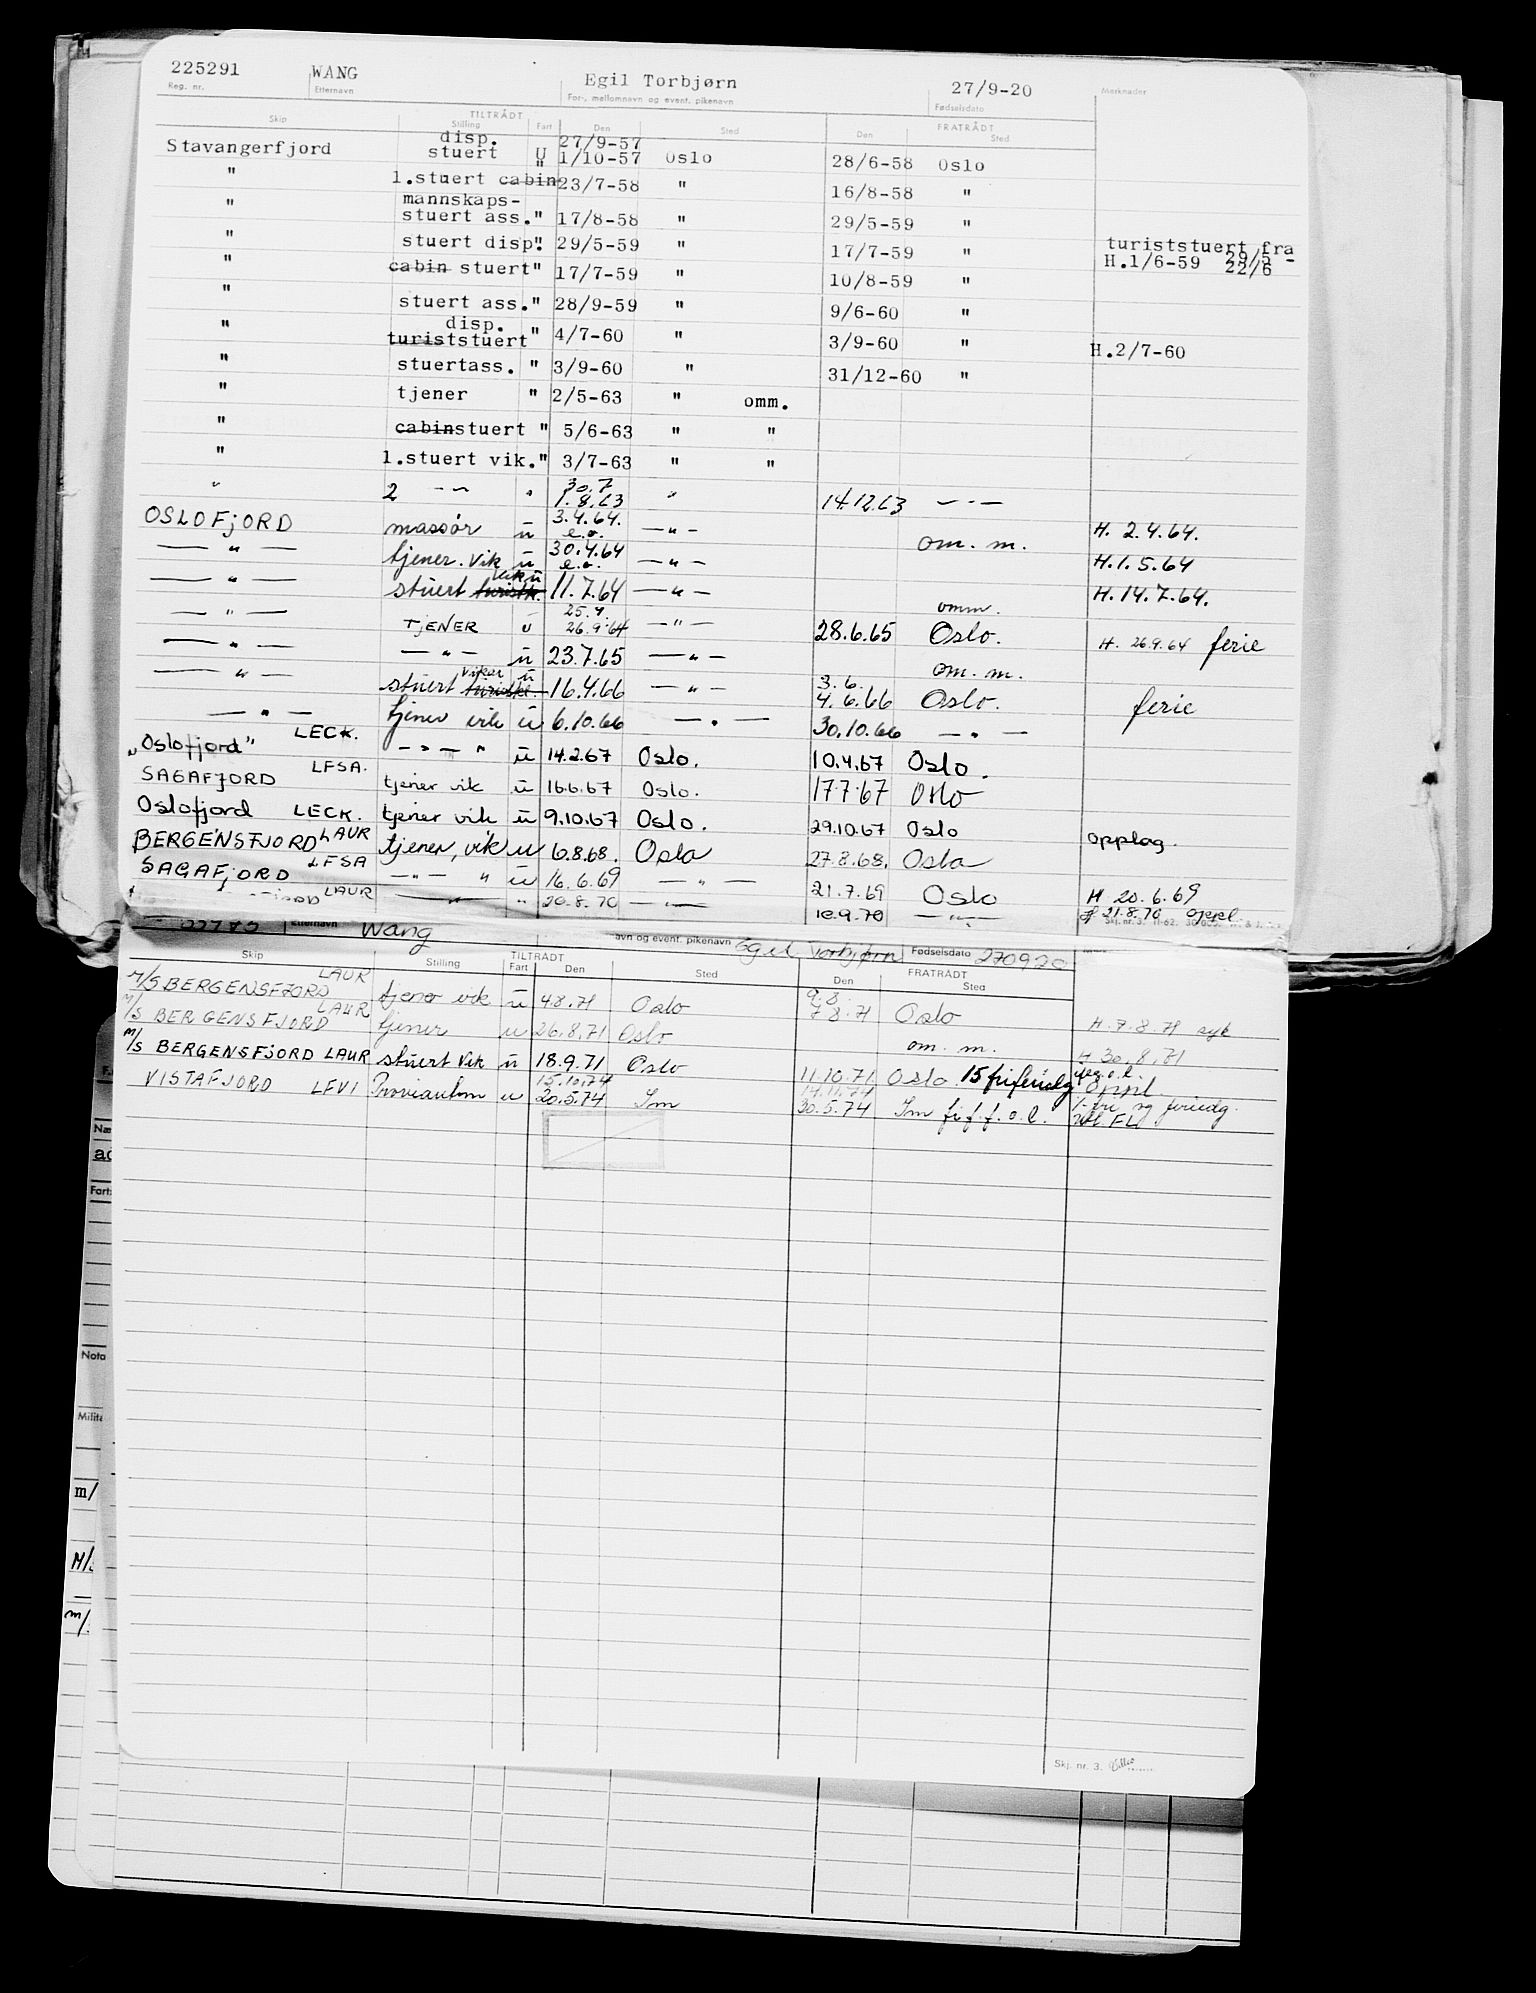 225291 WANG Egil Torbjørn 27/9-20
Reg. nr. Etternavn For-, mellomnavn og event. pikenavn Fødselsdato Merknader
TILTRÅDT FRATRÅDT
Skip Stilling Fart Den Sted Den Sted
disp. 27/9-57
Stavangerfjord stuert U 1/10-57 Oslo 28/6-58 Oslo
" 1.stuert cabin " 23/7-58 " 16/8-58 "
mannskaps-
" stuert ass. " 17/8-58 " 29/5-59 "
" stuert disp. " 29/5-59 " 17/7-59 " turiststuert fra
H.1/6-59 29/5 - 22/6
" cabin stuert " 17/7-59 " 10/8-59 "
" stuert ass. " 28/9-59 " 9/6-60 "
disp.
" turiststuert " 4/7-60 " 3/9-60 " H.2/7-60
" stuertass. " 3/9-60 " 31/12-60 "
" tjener " 2/5-63 " omm.
" cabinstuert " 5/6-63 " "
" 1.stuert vik. " 3/7-63 " "
30.7
" 2 — " — " 1.8.63 " 14.12.63 — " —
OSLOFJORD massør u 3.4.64. e.o. — " — om. m. H. 2.4.64.
— " — tjener. vik u 30.4.64 e.o. — " — H.1.5.64
— " — stuert turistk. vik u 11.7.64 — " — omm. H. 14.7.64.
25.9.
— " — TJENER u 26.9.64 — " — 28.6.65 Oslo. H. 26.9.64 ferie
— " — — " — u 23.7.65 — " — om. m.
— " — stuert turistkl. vikar u 16.4.66 — " — 3.6. 4.6.66 Oslo. ferie
— " — tjener vik u 6.10.66 — " — 30.10.66 — " —
„Oslofjord" LECK. — " — " u 14.2.67 Oslo. 10.4.67 Oslo.
SAGAFJORD LFSA. tjener vik u 16.6.67 Oslo. 17.7.67 Oslo
Oslofjord LECK. tjener vik u 9.10.67 Oslo. 29.10.67 Oslo opplag.
BERGENSFJORD LAUR tjener, vik u 6.8.68. Oslo 27.8.68. Oslo
SAGAFJORD LFSA — " — " u 16.6.69 — " — 21.7.69 Oslo H 20.6.69
LAUR — " — " 20.8.70 — " — 10.9.70 — " — H 21.8.70 oppl.
Etternavn Wang avn og event. pikenavn Egil Torbjørn Fødselsdato 270920
TILTRÅDT FRATRÅDT
Skip Stilling Fart Den Sted Den Sted
M/S BERGENSFJORD LAUR tjener vik u 4.8.71 Oslo 9.8. 7.8.71 Oslo H. 7.8.71 syk
M/S BERGENSFJORD LAUR tjener u 26.8.71 Oslo om. m. H 30.8.71
M/S BERGENSFJORD LAUR stuert vik u 18.9.71 Oslo 11.10.71 Oslo 15 frifridg
15.10.74
VISTAFJORD LFVI Proviantom u 20.5.74 Im 30.5.74 Im fif.f.o.l.
Fart
Nota
m/
M/
m/
Skj. nr. 3.